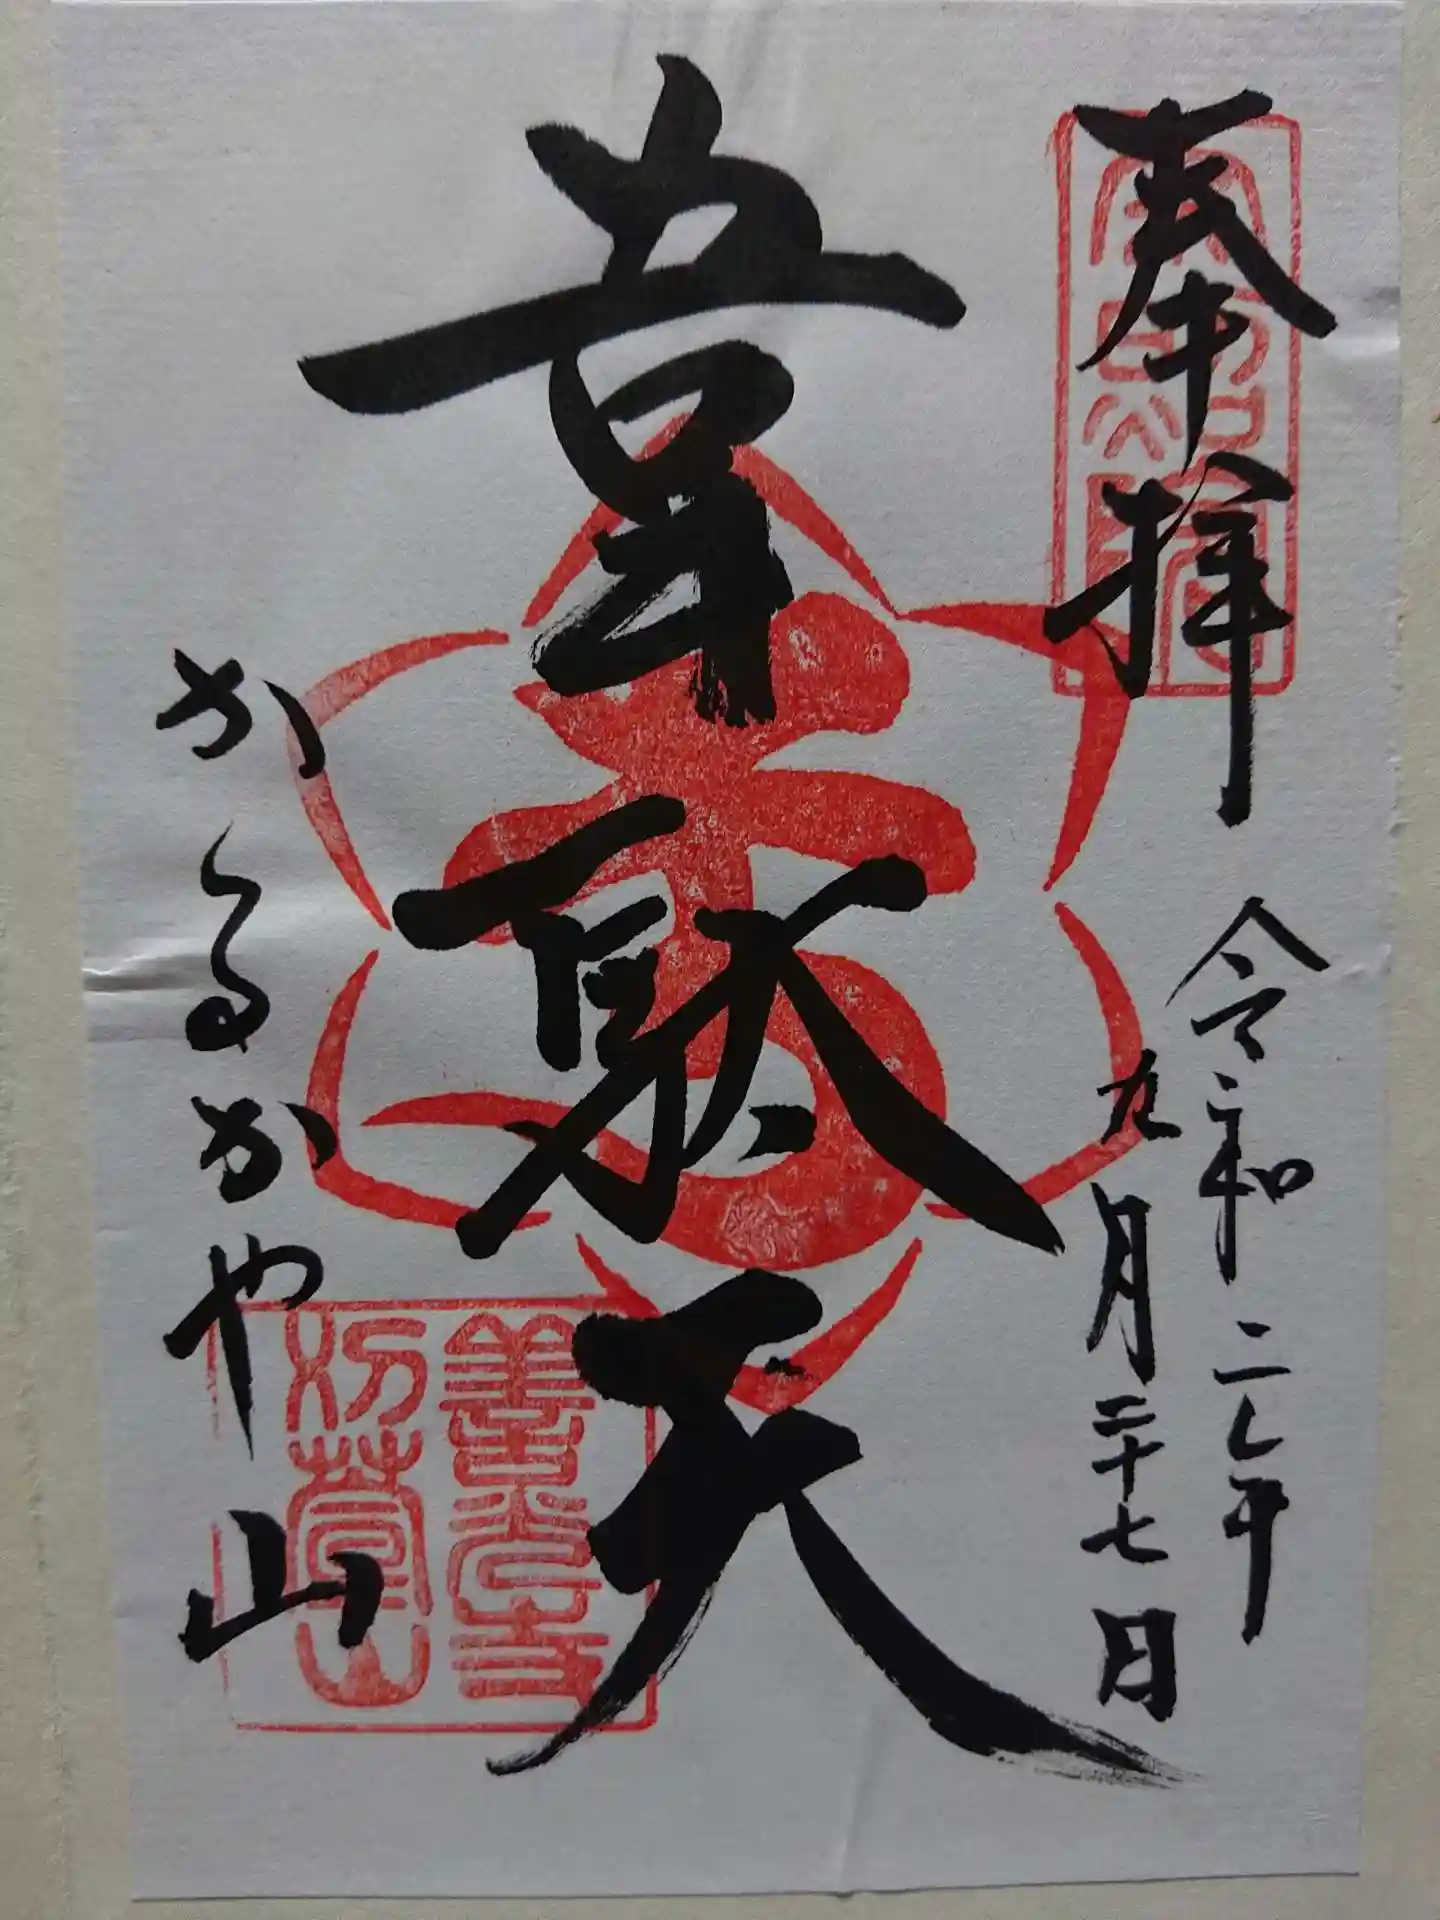 奉拝
令和二年
九月二十七日
韋駄天
かるかや山
善光寺
刈萱山